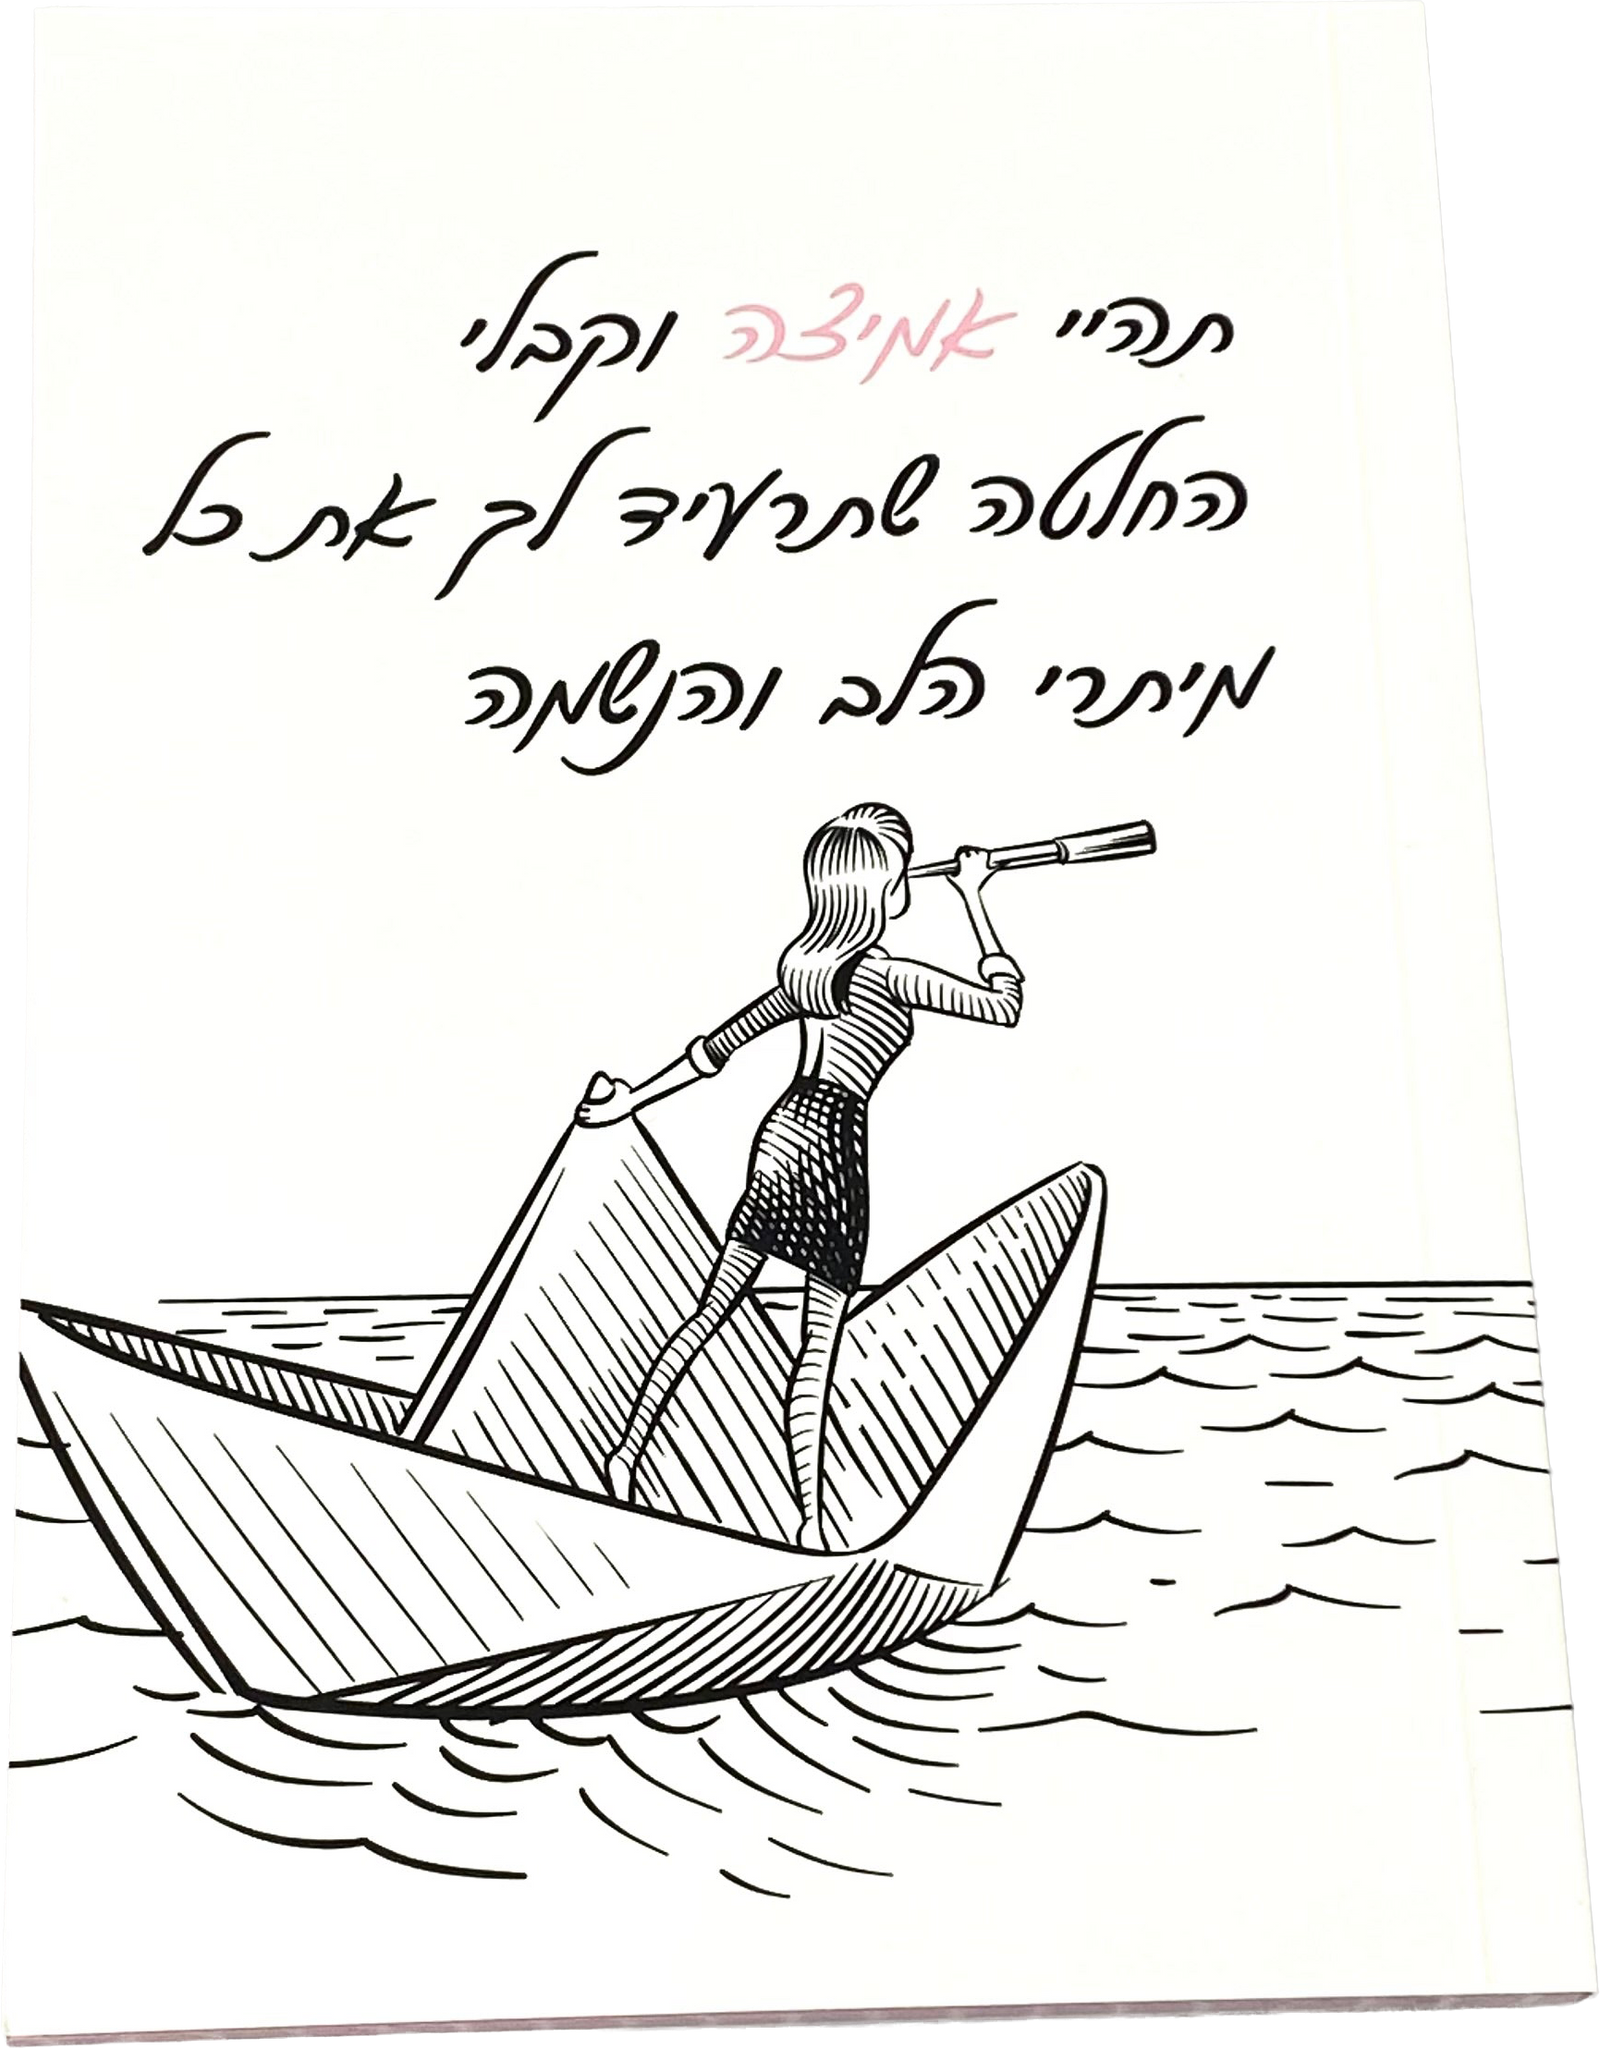 תהיי אמיצה וקבלי
החלטה שתרעיד לך את כל
מיתרי הלב והנשמה